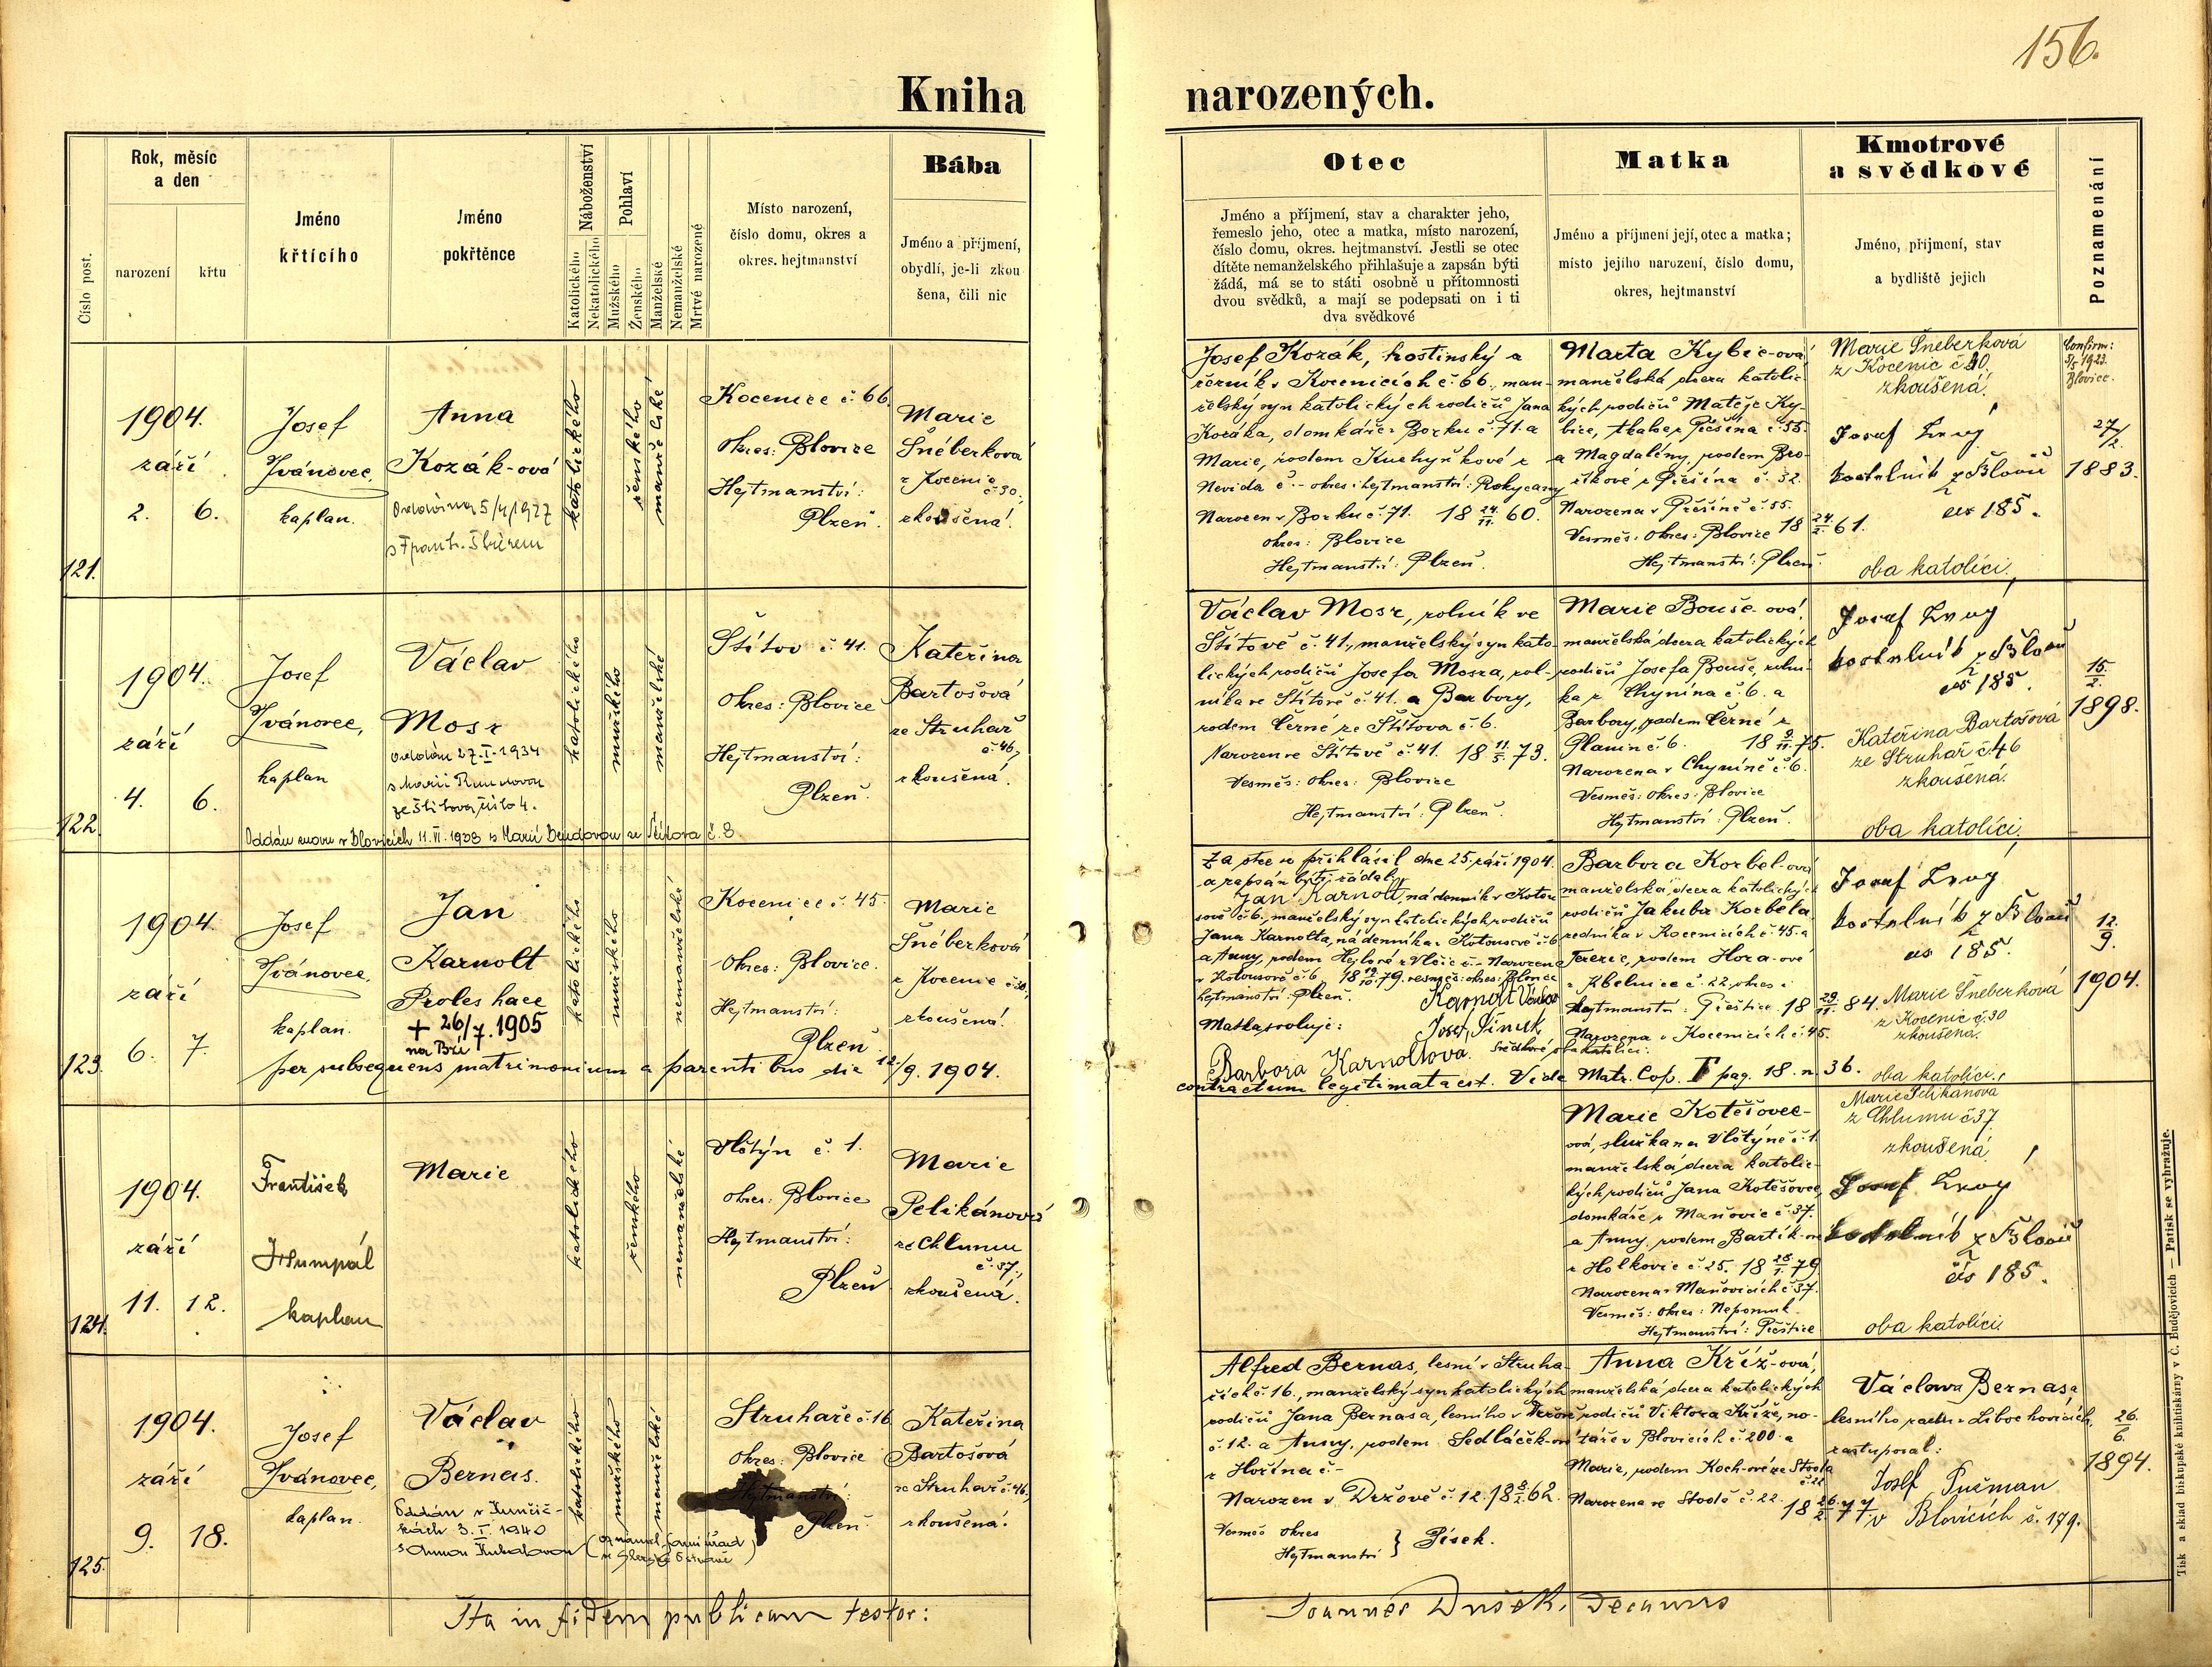 156.
Kniha narozených.
Číslo post.
Rok, měsíc
a den
narození
křtu
Jméno
křtícího
Jméno
pokřtěnce
Náboženství
Katolického
Nekatolického
Pohlaví
Mužského
Ženského
Manželské
Nemanželské
Mrtvé narozené
Místo narození,
číslo domu, okres a
okres. hejtmanství
Bába
Jméno a příjmení,
obydlí, je-li zkou-
šena, čili nic
Otec
Jméno a příjmení, stav a charakter jeho,
řemeslo jeho, otec a matka, místo narození,
číslo domu, okres. hejtmanství. Jestli se otec
dítěte nemanželského přihlašuje a zapsán býti
žádá, má se to státi osobně u přítomnosti
dvou svědků, a mají se podepsati on i ti
dva svědkové
Matka
Jméno a příjmení její, otec a matka;
místo jejího narození, číslo domu,
okres, hejtmanství
Kmotrové
a svědkové
Jméno, příjmení, stav
a bydliště jejich
Poznamenání
121.
1904.
září
2. 6.
Josef
Ivánovec,
kaplan.
Anna
Kozák-ová
Oddána 5/4 1927
s Frant.
katolického
ženského
manželské
Kocenice č. 66.
Okres: Blovice
Hejtmanství:
Plzeň.
Marie
Šnéberková
z Kocenic
č. 30.,
zkoušená.
Josef Kozák, hostinský a
řezník v Kocenicích č. 66., man-
želský syn katolických rodičů Jana
Kozáka, domkáře z Borku č. 71. a
Marie, rodem Kuchyňkové z
Nevida č. – okres i hejtmanství: Rokycany
Narozen v Borku č. 71. 18 24/11. 60.
Okres: Blovice
Hejtmanství: Plzeň.
Marta Kybic-ová
manželská dcera katolic-
kých rodičů Matěje Ky-
bice, tkalce z Příšína č. 55.
a Magdalény, rodem Bro-
žkové z Příšína č. 32.
Narozena v Příšíně č. 55.
Vesměs: Okres: Blovice 18 24/2. 61.
Hejtmanství: Plzeň.
Marie Šneberková
z Kocenic č. 30.
zkoušená.
Josef Lvový
kostelník z Blovic
čís 185.
oba katolíci.
Confirm:
5/5 1923.
Blovice.
27/2.
1883.
122.
1904.
září
4. 6.
Josef
Ivánovec,
kaplan
Václav
Mosz
Oddán 27.I.1934
s Marií
ze Štítova číslo 4.
Oddán znovu v Blovicích 11.VI.1938 s Marií Bendovou ze Štítova č. 8
katolického
mužského
manželské
Štítov č. 41.
Okres: Blovice
Hejtmanství:
Plzeň.
Kateřina
Bartošová
ze Struhař
č. 46,
zkoušená.
Václav Mosz, rolník ve
Štítově č. 41., manželský syn kato-
lických rodičů Josefa Mosza, rol-
níka ve Štítově č. 41. a Barbory,
rodem Černé ze Štítova č. 6.
Narozen ve Štítově č. 41. 18 11/5. 73.
Vesměs: Okres: Blovice
Hejtmanství: Plzeň.
Marie Bouše-ová
manželská dcera katolických
rodičů Josefa Bouše, rolní-
ka z Chynína č. 6. a
Barbory, rodem Černé z
Planin č. 6. 18 9/11. 75.
Narozena v Chyníně č. 6.
Vesměs: Okres: Blovice
Hejtmanství: Plzeň.
Josef Lvový
kostelník z Blovic
čís 185.
Kateřina Bartošová
ze Struhař č. 46
zkoušená.
oba katolíci.
15/2.
1898.
123.
1904.
září
6. 7.
Josef
Ivánovec,
kaplan.
Jan
Karnolt
Proles haec
+ 26/7. 1905
katolického
mužského
nemanželské
Kocenice č. 45.
Okres: Blovice.
Hejtmanství:
Plzeň
Marie
Šnéberková
z Kocenic č. 30,
zkoušená.
Za otce se přihlásil dne 25. září 1904.
a zapsán býti žádal:
Jan Karnolt, nádenník v Kotou-
sově č. 6., manželský syn katolických rodičů
Jana Karnolta, nádenníka z Kotousova č. 6
a Anny, rodem Hejlové z Vlčic č. – Narozen
v Kotousově č. 6 18 19/10. 79. vesměs: okres: Blovice
hejtmanství: Plzeň.
Karnolt Václav
Matka svoluje:
Josef Šimek
Barbora Karnoltova. Svědkové oba katolíci.
Barbora Korbel-ová
manželská dcera katolických
rodičů Jakuba Korbela
zedníka v Kocenicích č. 45. a
Terezie, rodem Hora-ové
z Kbelnice č. 22, okres i
hejtmanství: Přeštice 18 29/11. 84.
Narozena v Kocenicích č. 45.
per subsequens matrimonium a parentibus die 12/9. 1904.
contractum legitimata est. Vide Matr. Cop. I pag. 18. n. 36.
Josef Lvový
kostelník z Blovic
čís 185.
Marie Šneberková
z Kocenic č. 30
zkoušená.
oba katolíci.
12/9.
1904.
124.
1904.
září
11. 12.
František
Humpál
kaplan
Marie
katolického
ženského
nemanželské
Vlčtýn č. 1.
Okres: Blovice
Hejtmanství:
Plzeň
Marie
Pelikánová
ze Chlumu
č. 37.,
zkoušená.
Marie Kotěšovec-
ová, služka na Vlčtýně č. 1.
manželská dcera katolic-
kých rodičů Jana Kotěšovce,
domkáře z Maňovic č. 37.
a Anny, rodem Bartík-ové
z Holkovic č. 25. 18 28/1. 79
Narozena v Maňovicích č. 37.
Vesměs: Okres: Nepomuk.
Hejtmanství: Přeštice
Marie Pelikánova
z Chlumu č. 37
zkoušená
Josef Lvový
kostelník z Blovic
čís 185.
oba katolíci
125.
1904.
září
9. 18.
Josef
Ivánovec,
kaplan.
Václav
Bernas.
Oddán v Kunčič-
kách 3.I.1940
s Annou
(oznámil farní úřad
ve Slezské Ostravě)
katolického
mužského
manželské
Struhaře č. 16
Okres: Blovice
Hejtmanství:
Plzeň
Kateřina
Bartošová
ze Struhař č. 46,
zkoušená.
Alfred Bernas, lesní v Struha-
řích č. 16., manželský syn katolických
rodičů Jana Bernasa, lesního v Držově
č. 12. a Anny, rodem Sedláček-ové
z Hořína č. –
Narozen v Držově č. 12. 18 8/2. 62.
Vesměs Okres
Hejtmanství } Písek.
Anna Kříž-ová,
manželská dcera katolických
rodičů Viktora Kříže, no-
táře v Blovicích č. 200. a
Marie, rodem Koch-ové ze Stoda
č. 22.
Narozena ve Stodě č. 22. 18 26/2. 77.
Václava Bernasa,
lesního v Libochovicích
zastupoval:
Josef Pučman
v Blovicích č. 179.
26/6.
1894.
Ita in fidem publicam testor:
Joannes Dušek, Decanus
Tisk a sklad biskupské knihtiskárny v Č. Budějovicích — Patisk se vyhražuje.